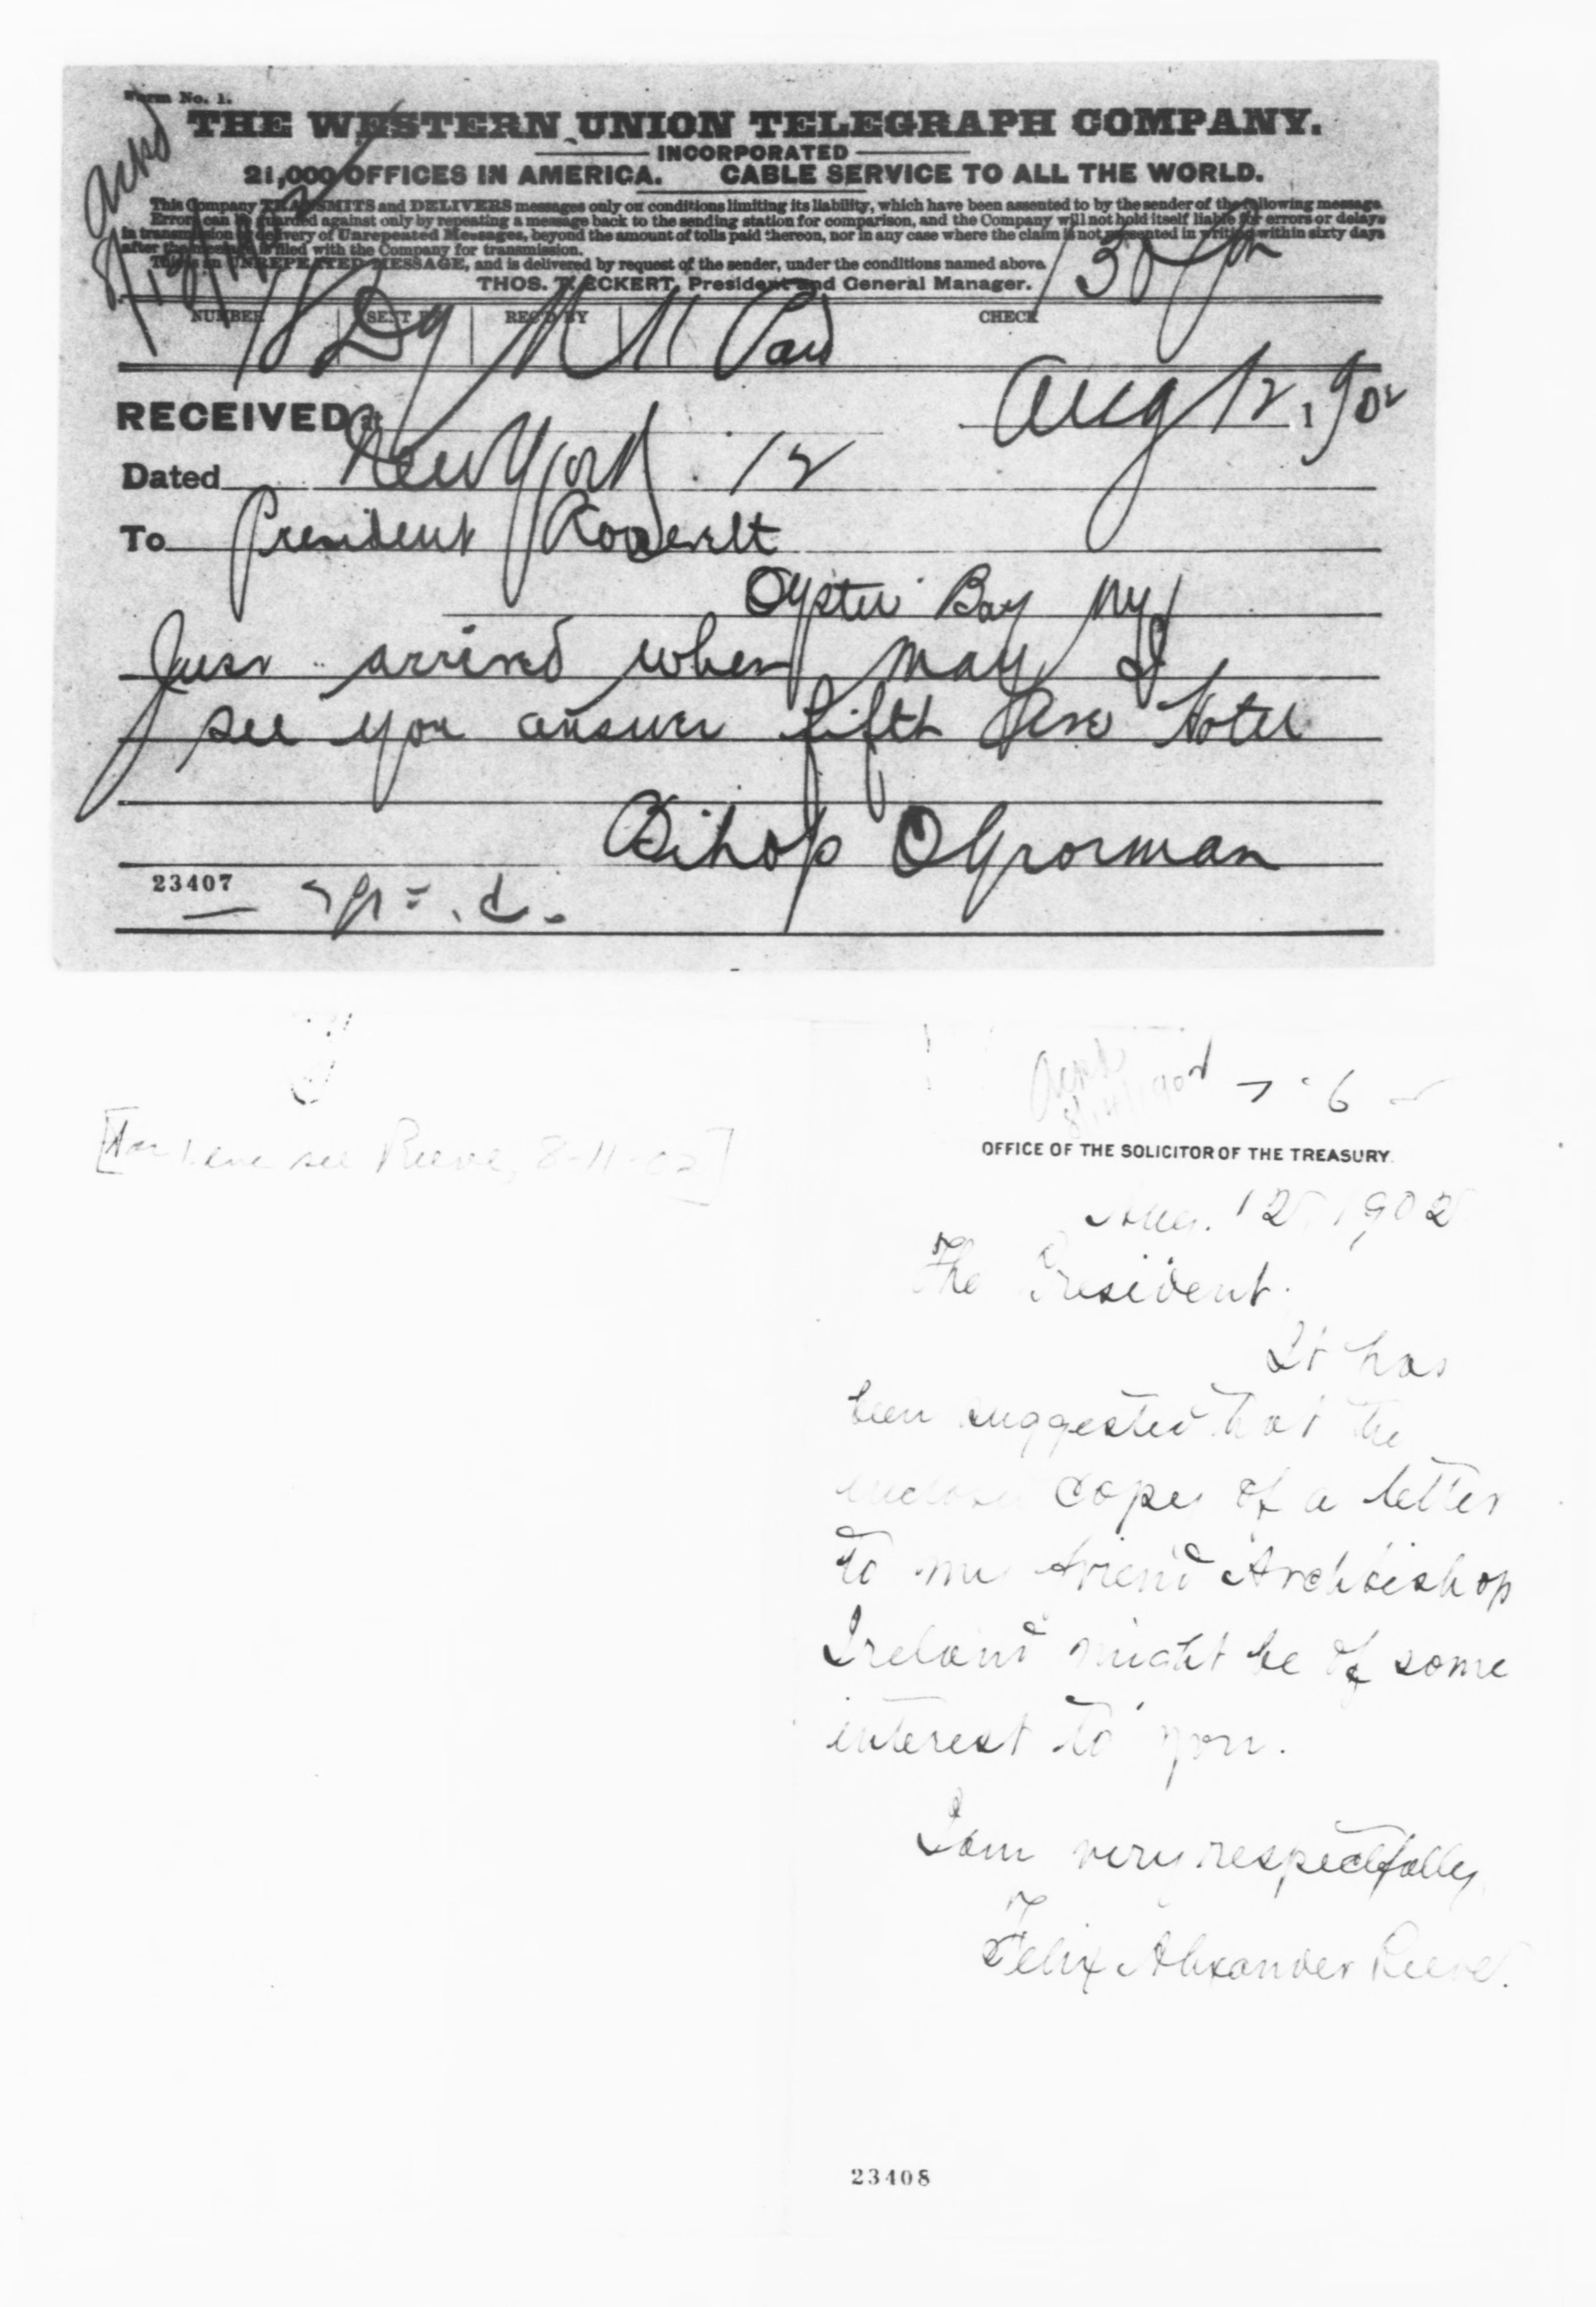 Form No. 1.
THE WESTERN UNION TELEGRAPH COMPANY.
INCORPORATED
21,000 OFFICES IN AMERICA. CABLE SERVICE TO ALL THE WORLD.
This Company TRANSMITS and DELIVERS messages only on conditions limiting its liability, which have been assented to by the sender of the following message.
Errors can be guarded against only by repeating a message back to the sending station for comparison, and the Company will not hold itself liable for errors or delays
in transmission or delivery of Unrepeated Messages, beyond the amount of tolls paid thereon, nor in any case where the claim is not presented in writing within sixty days
after the message is filed with the Company for transmission.
This is an UNREPEATED MESSAGE, and is delivered by request of the sender, under the conditions named above.
THOS. T. ECKERT, President and General Manager.
Ackd
130 pm
NUMBER SENT BY REC'D BY CHECK
Dg Paid
RECEIVED at Aug 12, 1902
Dated New York 12
To President Roosevelt
Oyster Bay NY
Just arrived when may I
see you answer fifth Ave Hotel
Bihop OGorman
23407
[For see Reeve, 8-11-02]
Ackd
OFFICE OF THE SOLICITOR OF THE TREASURY.
Aug. 12, 1902
The President.
It has
been suggested that the
enclosed copy of a letter
to my friend Archbishop
Ireland might be of some
interest to you.
I am very respectfully,
Felix Alexander Reeve.
23408